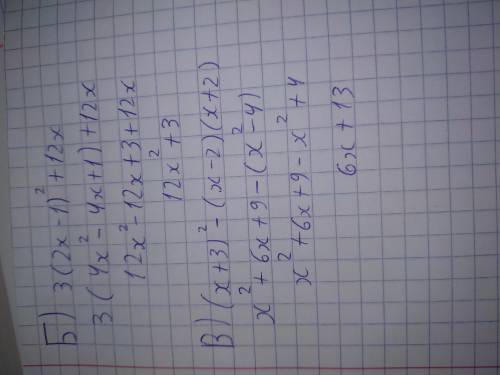 Б) 3(2x-1)² + 12x
3(4x² - 4x+1) +12x
12x² - 12x+3+12x
12x² + 3
В) (x+3)² - (x-2)(x+2)
x² + 6x + 9 - (x² - 4)
x² + 6x + 9 - x² + 4
6x + 13